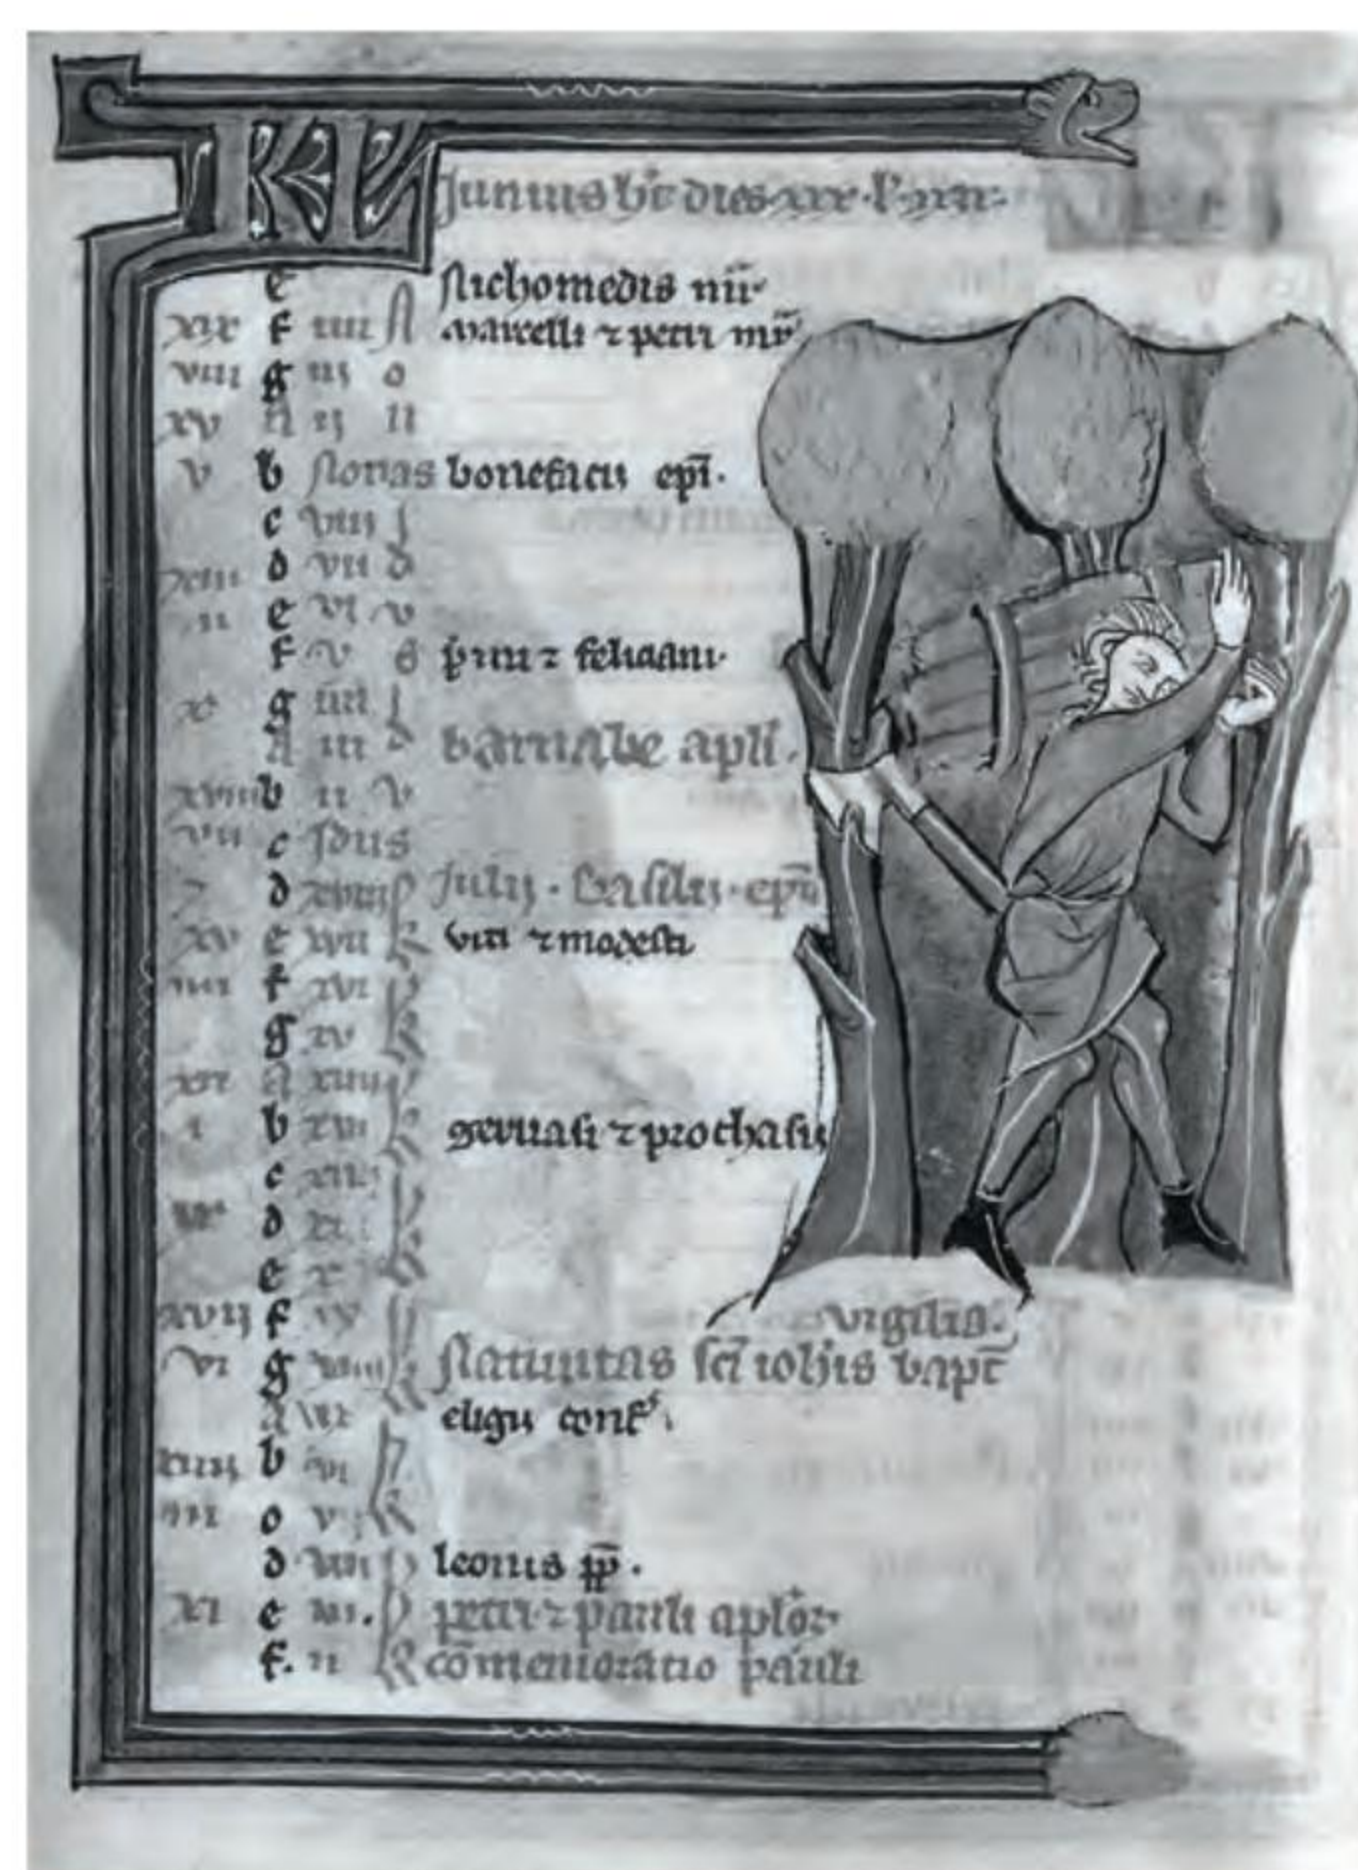 KL Junius ht dies xxx · l · xxix ·
e Nichomedis mr̄
xix f iiii N marcelli ⁊ petri mr̄
viii g iij o
xv A ij n
v b Nonas bonefacii epī ·
c viii j
xiii d vii d
ii e vi v
f v s primi ⁊ feliciani ·
x g iiii j
A iii d barnabe apli ·
xviii b ii v
vii c jdus
d xviii k Julij · Basilij · epī
xv e xvii k viti ⁊ modesti
iiii f xvi k
g xv k
xii A xiiii k
i b xiii k geruasi ⁊ prothasii
c xii k
d xi k
e x k
xvij f ix k vigilia ·
vi g viii k Natiuitas scī ioh̄is bapt̄
A vii k eligii conf
xiiij b vi k
iii c v k
d iiii k leonis pp̄ ·
xi e iii · k petri ⁊ pauli aplor
f · ii k cōmemoratio pauli